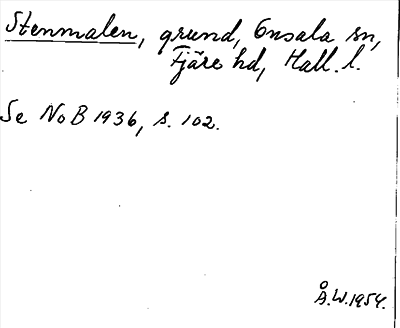 Stenmalen, grund, Onsala sn,
Fjäre hd, Hall. l.
Se NoB 1936, s. 102.
Å.W. 1954.